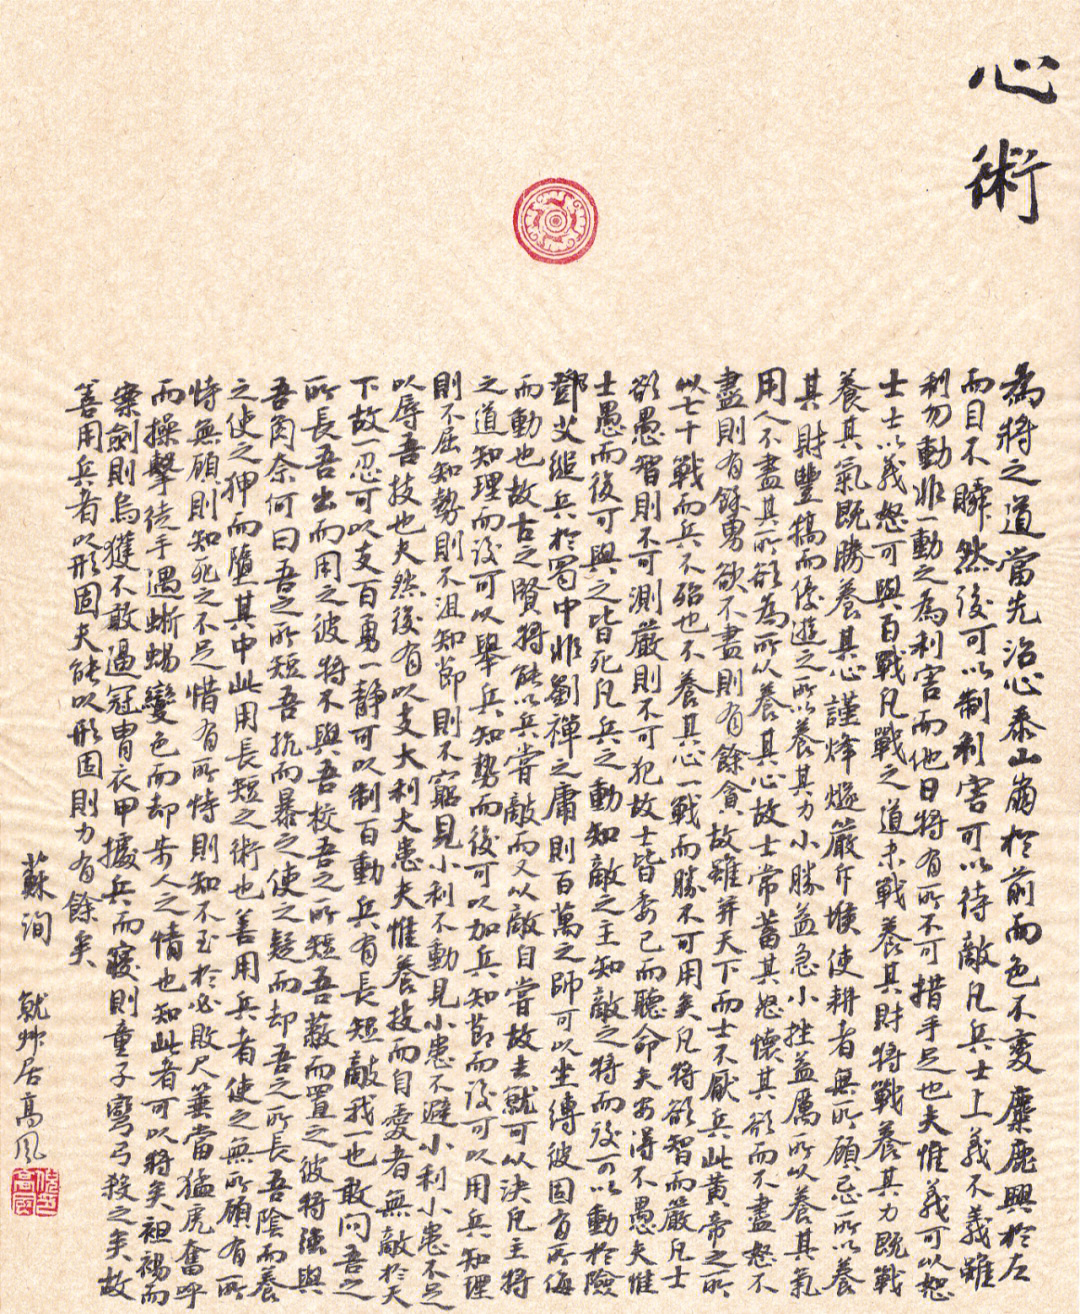 心術
為將之道當先治心泰山崩於前而色不變麋鹿興於左
而目不瞬然後可以制利害可以待敵凡兵士上義不義雖
利勿動非一動之為利害而他日將有所不可措手足也夫惟義可以怒
士士以義怒可與百戰凡戰之道未戰養其財將戰養其力既戰
養其氣既勝養其心謹烽燧嚴斥堠使耕者無所顧忌所以養
其財豐犒而優遊之所以養其力小勝益急小挫益厲所以養其氣
用人不盡其所欲為所以養其心故士常蓄其怒懷其欲而不盡怒不
盡則有餘勇欲不盡則有餘貪故雖并天下而士不厭兵此黃帝之所
以七十戰而兵不殆也不養其心一戰而勝不可用矣凡將欲智而嚴凡士
欲愚智則不可測嚴則不可犯故士皆委己而聽命夫安得不愚夫惟
士愚而後可與之皆死凡兵之動知敵之主知敵之將而後可以動於險
鄧艾縋兵於蜀中非劉禪之庸則百萬之師可以坐縛彼固有所侮
而動也故古之賢將能以兵嘗敵而又以敵自嘗故去就可以決凡主將
之道知理而後可以舉兵知勢而後可以加兵知節而後可以用兵知理
則不屈知勢則不沮知節則不窮見小利不動見小患不避小利小患不足
以辱吾技也夫然後有以支大利大患夫惟養技而自愛者無敵於天
下故一忍可以支百勇一靜可以制百動兵有長短敵我一也敢問吾之
所長吾出而用之彼將不與吾校吾之所短吾蔽而置之彼將強與
吾角奈何曰吾之所短吾抗而暴之使之疑而卻吾之所長吾陰而養
之使之狎而墮其中此用長短之術也善用兵者使之無所顧有所
恃無顧則知死之不足惜有所恃則知不至於必敗尺箠當猛虎奮呼
而操擊徒手遇蜥蜴變色而卻步人之情也知此者可以將矣袒裼而
案劍則烏獲不敢逼冠冑衣甲據兵而寢則童子彎弓殺之矣故
善用兵者以形固夫能以形固則力有餘矣
蘇洵 就艸居高風